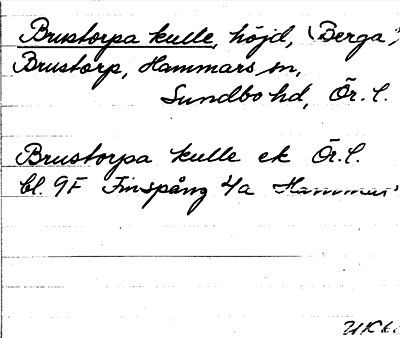 Brustorpa kulle, höjd, (Berga)
Brustorp, Hammars sn,
Sundbo hd, Ör. l.
Brustorpa kulle ek Ör. l.
bl. 9F Finspång 4a Hammar